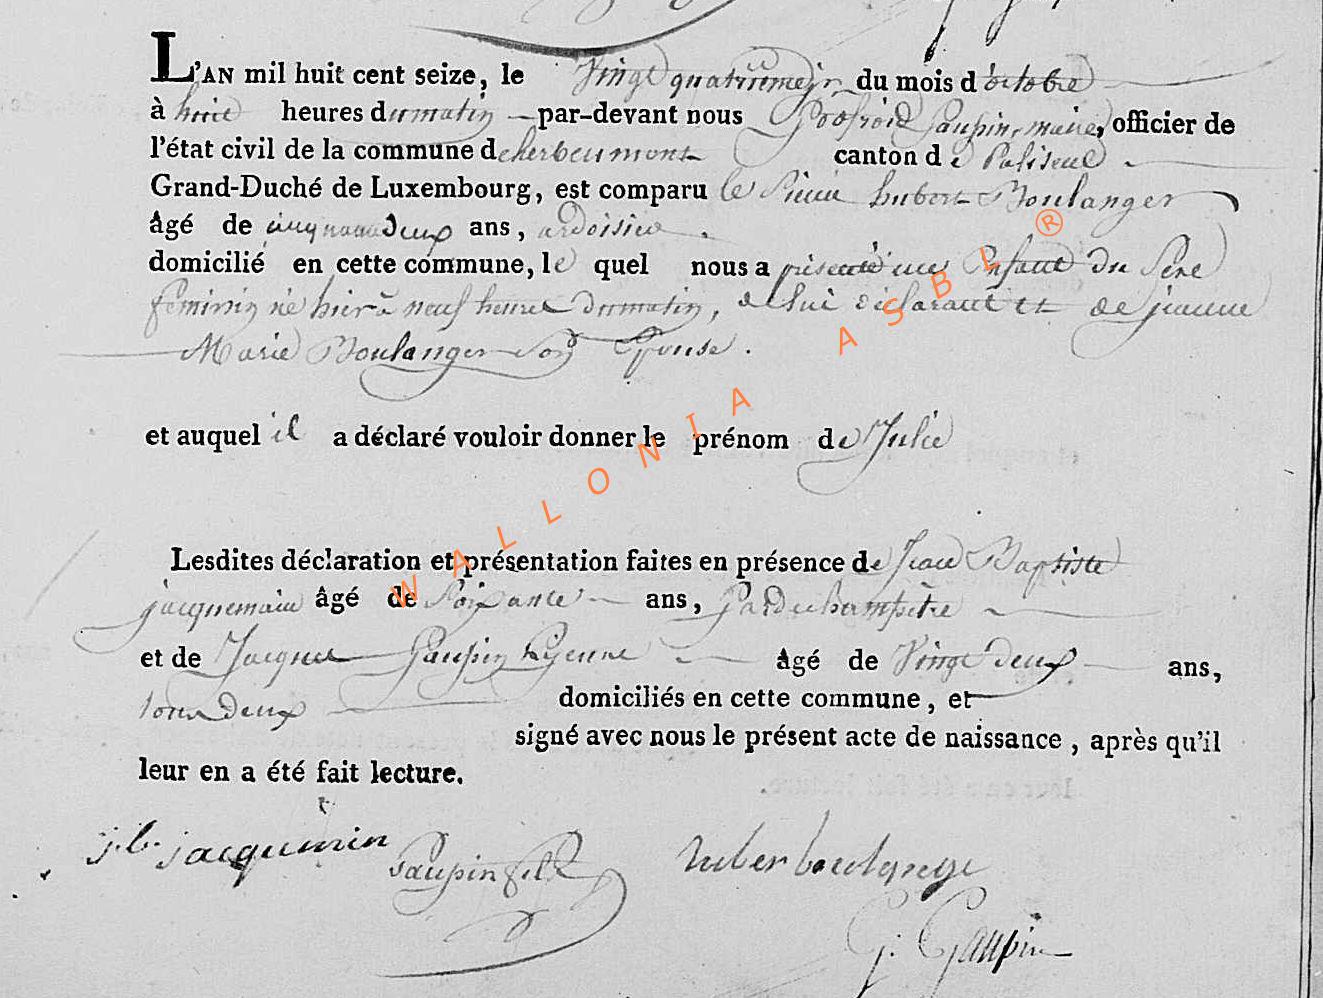 L'AN mil huit cent seize, le Vingt quatrieme jr du mois d'octobre
à huit heures du matin par-devant nous Godfroid Gaupin, maire, officier de
l'état civil de la commune d'cherbeumont canton de Paliseul
Grand-Duché de Luxembourg, est comparu le Sieur hubert Boulanger
âgé de cinquante deux ans, ardoisier.
domicilié en cette commune, le quel nous a présenté un Enfant du Sexe
féminin né hier à neuf heures du matin, de lui déclarant et de jeanne
Marie Boulanger son Epouse.
et auquel il a déclaré vouloir donner le prénom de Julie
Lesdites déclaration et présentation faites en présence de Jean Baptiste
jacquemain âgé de Soixante ans, Garde champêtre
et de Jacques Gaupin âgé de Vingt deux ans,
tous deux domiciliés en cette commune, et
signé avec nous le présent acte de naissance, après qu'il
leur en a été fait lecture.
j.b. jacquemin Gaupin fils huber boulanger
G. Gaupin
WALLONIA ASBL ®